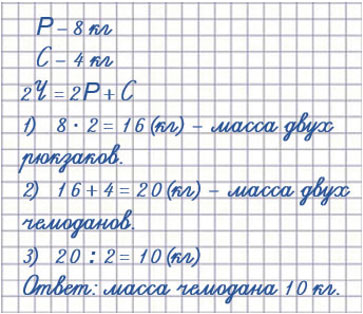 Р – 8 кг
С – 4 кг
2Ч = 2Р + С
1) 8 · 2 = 16 (кг) – масса двух
рюкзаков.
2) 16 + 4 = 20 (кг) – масса двух
чемоданов.
3) 20 : 2 = 10 (кг)
Ответ: масса чемодана 10 кг.